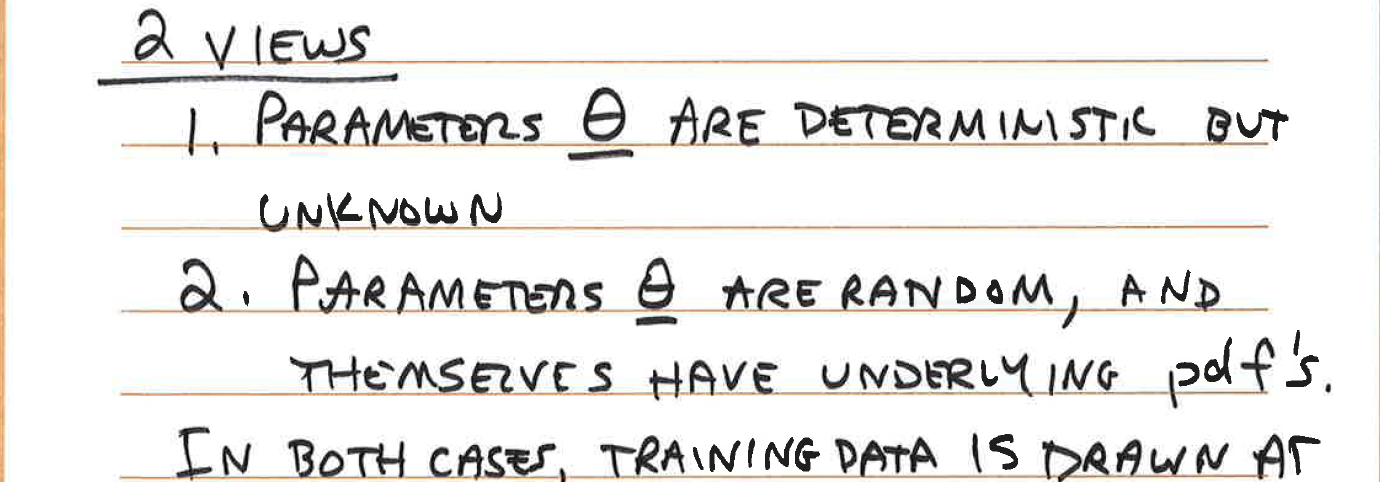 2 VIEWS
1. PARAMETERS θ ARE DETERMINISTIC BUT
UNKNOWN
2. PARAMETERS θ ARE RANDOM, AND
THEMSELVES HAVE UNDERLYING pdf's.
IN BOTH CASES, TRAINING DATA IS DRAWN AT